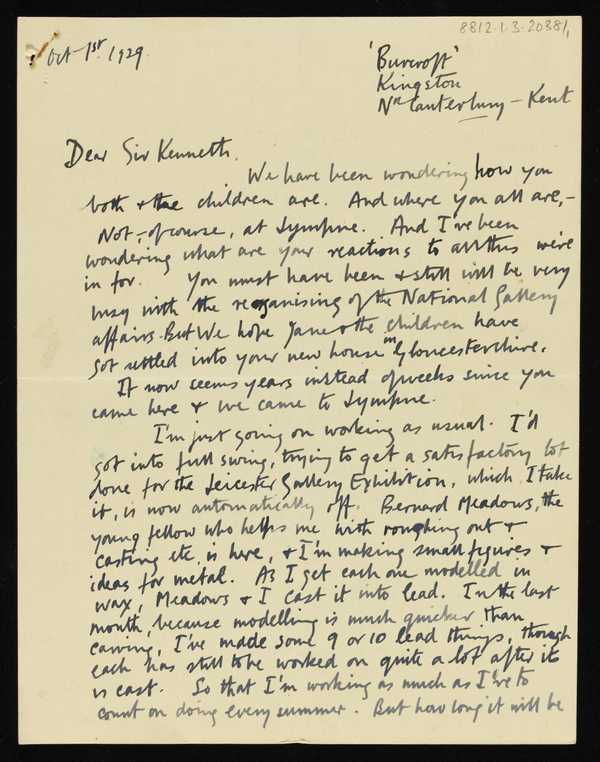 8812.1.3.2038/1
Oct 1st. 1929.
'Burcroft'
Kingston
Nr Canterbury – Kent
Dear Sir Kenneth,
We have been wondering how you
both & the children are. And where you all are, –
Not, – of course, at Lympne. And I've been
wondering what are your reactions to all this we're
in for. You must have been & still will be very
busy with the reorganising of the National Gallery
affairs. But we hope Jane & the children have
got settled into your new house in Gloucestershire.
It now seems years instead of weeks since you
came here & we came to Lympne.
I'm just going on working as usual. I'd
got into full swing, trying to get a satisfactory lot
done for the Leicester Gallery Exhibition, which, I take
it, is now automatically off. Bernard Meadows, the
young fellow who helps me with roughing out &
casting etc. is here, & I'm making small figures &
ideas for metal. As I get each one modelled in
wax, Meadows & I cast it into lead. In the last
month, because modelling is much quicker than
carving, I've made some 9 or 10 lead things, though
each has still to be worked on quite a lot after it
is cast. So that I'm working as much as I've to
count on doing every summer. But how long it will be